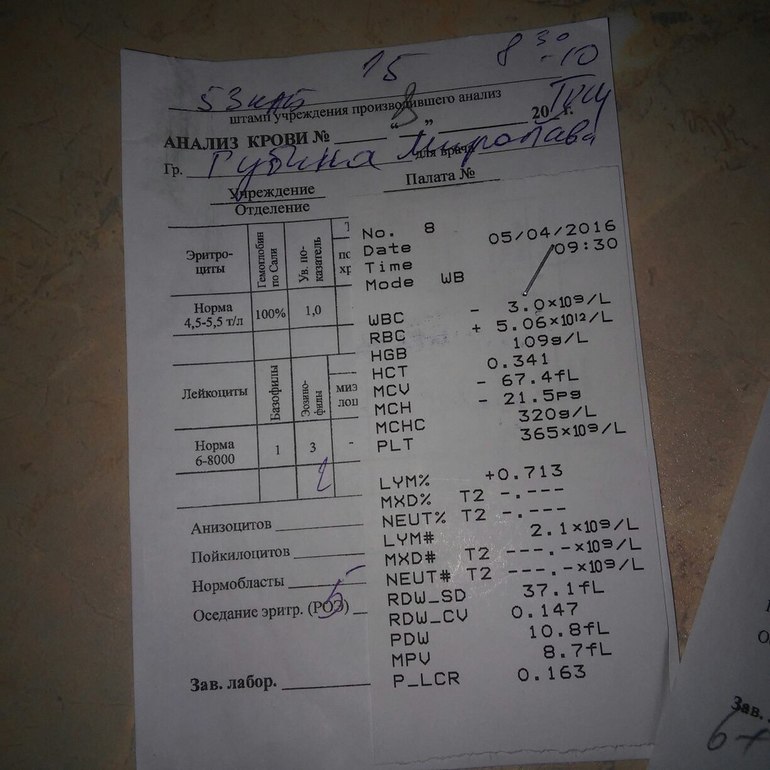 15 8 30 -10
штамп учреждения производившего анализ
АНАЛИЗ КРОВИ № „8“ 20 г.
Гр. Губина для врача
Учреждение Палата №
Отделение
Эритро-
циты
Гемоглобин
по Сали
Ув. по-
казатель
Норма
4,5-5,5 т/л
100%
1,0
Лейкоциты
Базофилы
Эозино-
филы
миэ
лоц
Норма
6-8000
1
3
-
2
Анизоцитов
Пойкилоцитов
Нормобласты
Оседание эритр. (РОЭ) 5
Зав. лабор.
No. 8
Date 05/04/2016
Time 09:30
Mode WB
WBC - 3.0×10⁹/L
RBC + 5.06×10¹²/L
HGB 109g/L
HCT 0.341
MCV - 67.4fL
MCH - 21.5pg
MCHC 320g/L
PLT 365×10⁹/L
LYM% +0.713
MXD% T2 -.---
NEUT% T2 -.---
LYM# 2.1×10⁹/L
MXD# T2 ---.-×10⁹/L
NEUT# T2 ---.-×10⁹/L
RDW_SD 37.1fL
RDW_CV 0.147
PDW 10.8fL
MPV 8.7fL
P_LCR 0.163
Зав.